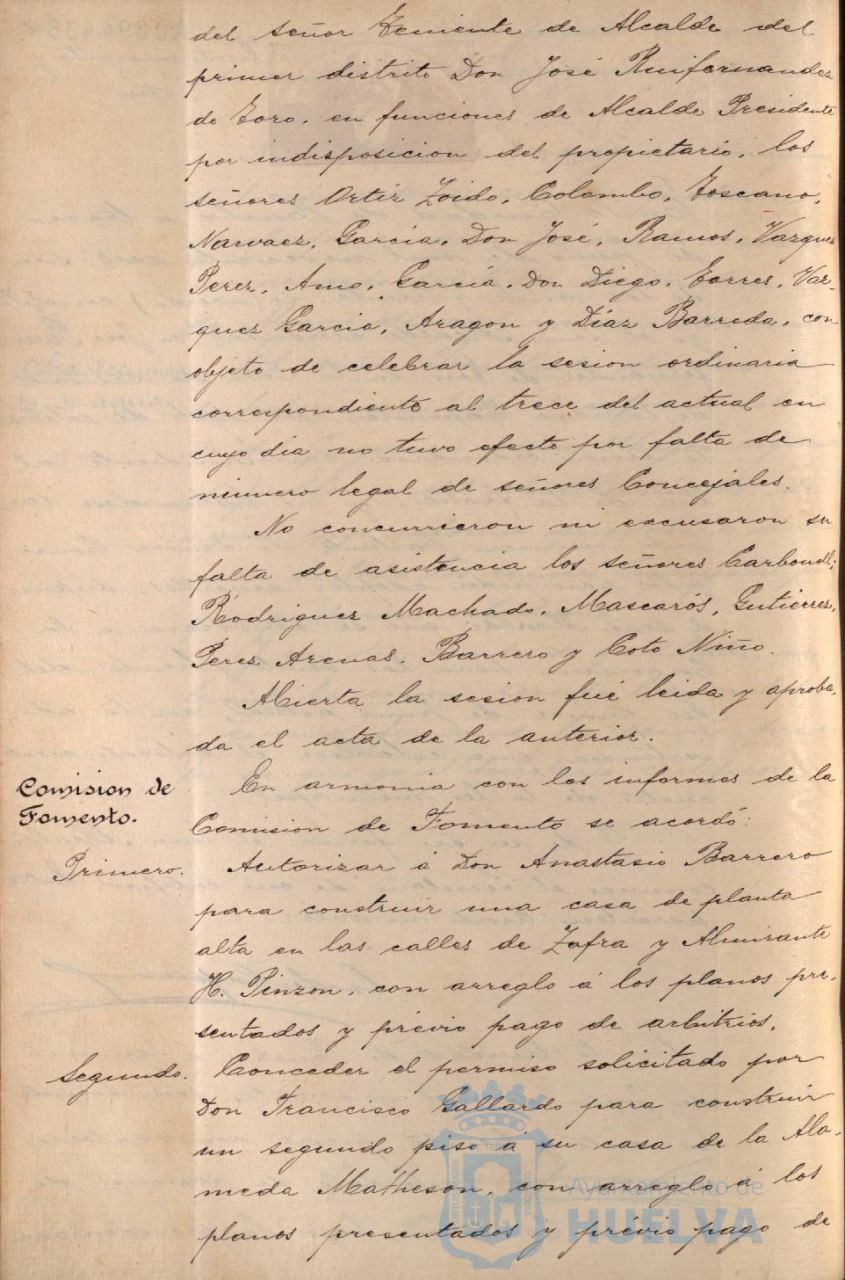 del señor Teniente de Alcalde del
primer distrito Don José Ruifernandez
de Toro, en funciones de Alcalde Presidente
por indisposicion del propietario, los
señores Ortiz Zoido, Colombo, Toscano,
Narvaez, Garcia, Don José, Ramos, Vazquez
Perez, Amo, García, Don Diego, Torres, Vaz-
quez Garcia, Aragon y Díaz Barreda, con
objeto de celebrar la sesion ordinaria
correspondiente al trece del actual en
cuyo dia no tuvo efecto por falta de
número legal de señores Concejales.
No concurrieron ni escusaron su
falta de asistencia los señores Carbonell,
Rodriguez Machado, Mascarós, Gutiérrez,
Perez Arenas, Barrero y Coto Niño.
Abierta la sesion fué leida y aproba-
da el acta de la anterior.
Comision de
Fomento.
En armonia con los informes de la
Comision de Fomento se acordó:
Primero.
Autorizar á Don Anastasio Barrero
para construir una casa de planta
alta en las calles de Zafra y Almirante
H. Pinzon, con arreglo á los planos pre-
sentados y prévio pago de arbitrios.
Segundo.
Conceder el permiso solicitado por
Don Francisco Gallardo para construir
un segundo piso á su casa de la Ala-
meda Matheson, con arreglo á los
planos presentados y prévio pago de
Ayuntamiento de
HUELVA